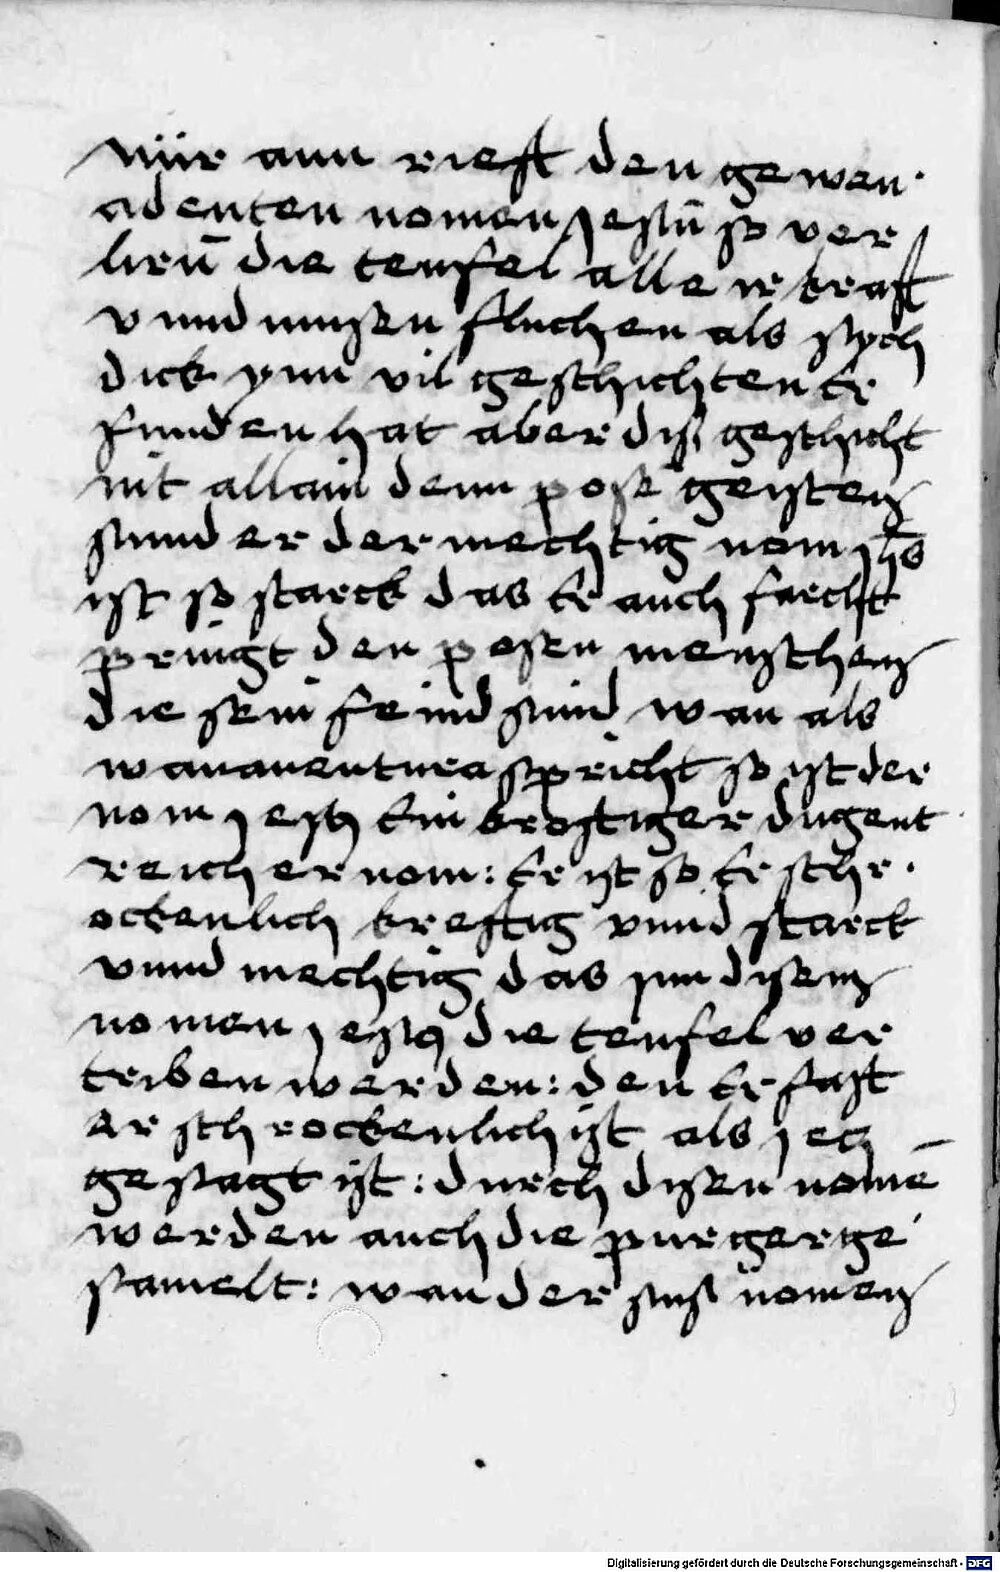 nür ann rieft den gewen
adenten nomen Jesū so ver
lirn̄ die teufel alle ir kraft
vnnd musen fluchen als sych
dick ynn vil geschichten er
funden hat aber diß geschicht
nit allain denn pose geisten
sunnd er der mechtig nom jhs
ist so starck das er auch farcht
pringt den posen menschen
die sein feind sind wan als
wanauentura spricht so ist der
nom jesus ein kroftiger dugent
reicher nom: er ist so erschr
ockenlich kreftig vnnd starck
vnnd mechtig das jnn disem
nomen jesus die teufel ver
triben werden: den er fast
er sch rockenlich ist als jecz
gesagt ist: durch disen nomē
werden auch die purger ge
samelt: wan der sus nomen
Digitalisierung gefördert durch die Deutsche Forschungsgemeinschaft - DFG